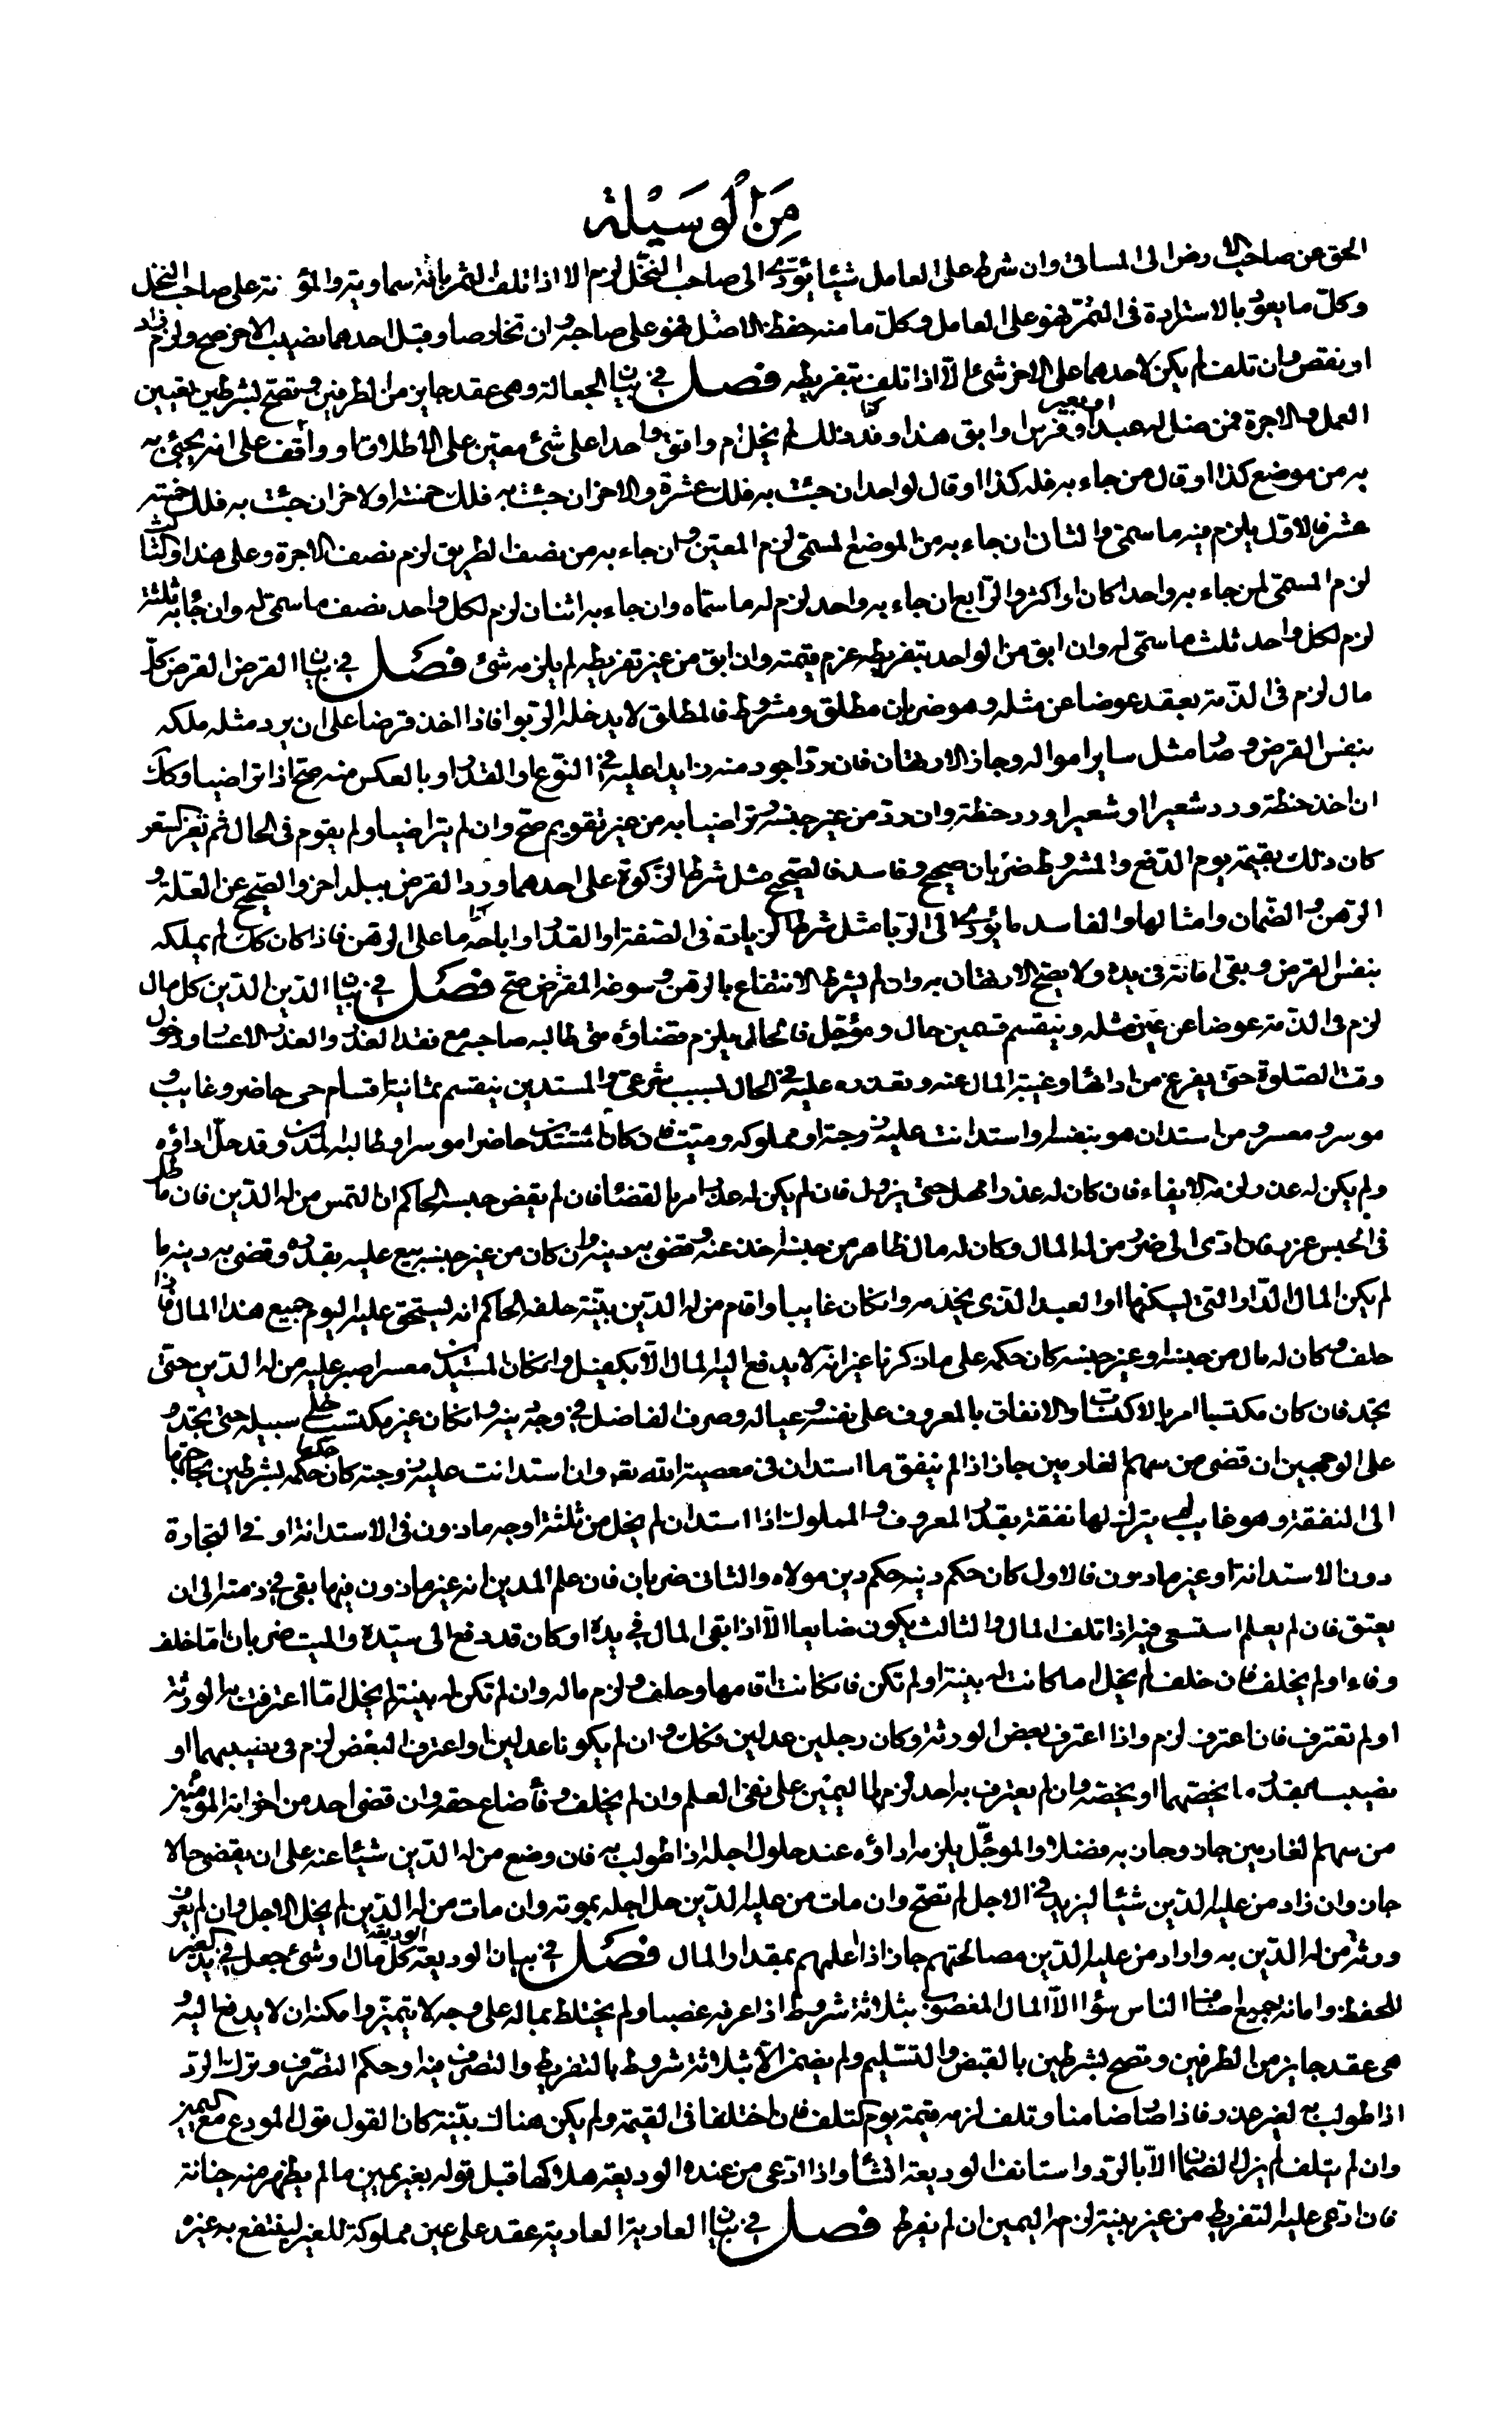 من الوسيلة
الحق من صاحب الارض الى المساقى وان شرط على العامل شيئا يؤدى الى صاحب النخل لزم الا اذا تلف الثمر بافة سماوية والمؤنة على صاحب النخل
وكل ما يعود بالاستزادة فى الثمر فهو على العامل وكل ما منه حفظ الاصل فهو على صاحبه وان تخارصا وقبل احدهما نصيب الاخر صح ولزم زاد
او نقص وان تلف لم يكن لاحدهما على الاخر شئ الا اذا تلف بتفريطه فصل فى بيان الجعالة وهى عقد جايز من الطرفين وتصح بشرطين تعيين
العمل والاجرة فمن ضل له عبد او بعير او فرس او ابق هذا وذلك لم يخل ام وافق واحدا على شئ معين على الاطلاق او واقف على انه يجيئ به
به من موضع كذا او قال من جاء به فله كذا او قال لواحد ان جئت به فلك عشرة والاخر ان جئت به فلك خمسة او لاخر ان جئت به فلك خمسة
عشر فالاول يلزم فيه ما سمى والثان ان جاء به من الموضع المسمى لزم المعين وان جاء به من نصف الطريق لزم نصف الاجرة وعلى هذا والثالث
لزم المسمى لمن جاء به واحدا كان او اكثر والرابع ان جاء به واحد لزم له ما سماه وان جاء به اثنان لزم لكل واحد نصف ما سمى له وان جاء به ثلثة
لزم لكل واحد ثلث ما سمى له وان ابق من الواحد بتفريطه غرم قيمته وان ابق من غير تفريطه لم يلزمه شئ فصل فى بيان القرض القرض كل
مال لزم فى الذمة بعقد عوضا عن مثله وهو ضربان مطلق ومشروط فالمطلق لا يدخله الربوا فاذا اخذ قرضا على ان يرد مثله ملكه
بنفس القرض وصار مثل ساير امواله وجاز الارتهان فان رد اجود منه زايدا عليه فى النوع او القدر او بالعكس منه صح اذا تراضيا وكك
ان اخذ حنطة ورد شعيرا او شعيرا ورد حنطة وان رد من غير جنسه وتراضيا به من غير تقويم صح وان لم يتراضيا ولم يقوم فى الحال ثم تغير السعر
كان ذلك بقيمة يوم الدفع والمشروط ضربان صحيح وفاسد فالصحيح مثل شرط الزكوة على احدهما ورد القرض ببلد اخر والصحيح عن الغلة و
الرهن والضمان وامثالها والفاسد ما يؤدى الى الربا مثل شرط الزيادة فى الصفة او القدر او اباحة ما على الرهن فاذا كان كك لم يملكه
بنفس القرض وبقى امانة فى يده ولا يصح الارتهان به وان لم يشرط الانتفاع بالرهن وسوغه المقرض صح فصل فى بيان الدين الدين كل مال
لزم فى الذمة عوضا عن غير مثله وينقسم قسمين حال ومؤجل فالحال يلزم قضاؤه متى طالبه صاحبه مع فقد العذر والعذر الاعسار ودخول
وقت الصلوة حتى يفرغ من ادائها وغيبة المال عنه وتعذره عليه فى الحال لسبب شرعى والمستدين ينقسم ثمانية اقسام حى حاضر وغايب و
موسر ومعسر ومن استدان هو بنفسه او استدانت عليه زوجته او مملوكه وميت فان كان المستدين حاضرا موسرا وطالبه المدين وقد حل اداؤه
ولم يكن له عذر لزمه الايفاء فان كان له عذر امهل حتى يزول فان لم يكن له عذر امر بالقضاء فان لم يقض حبسه الحاكم ان التمس من له الدين فان ماطل
فى الحبس عزره فان ادى الى ضرر من له المال وكان له مال ظاهر من جنسه اخذ عنه وقضى به دينه وان كان من غير جنسه بيع عليه بقدره وقضى به دينه ما
لم يكن المال الدار التى يسكنها او العبد الذى يخدمه وان كان غايبا واقام من له الدين بينة حلفه الحاكم انه يستحق عليه اليوم جميع هذا المال فاذا
حلف وكان له مال من جنسه او غير جنسه كان حكمه على ما ذكرنا غير انه لا يدفع اليه المال الا بكفيل وان كان المستدين معسرا صبر عليه من له الدين حتى
يجد فان كان مكتسبا امر بالاكتساب والانفاق بالمعروف على نفسه وعياله وصرف الفاضل فى وجه دينه وان كان غير مكتسب خلى سبيله حتى يجد و
على الوجهين ان قضى من سهم الغارمين جاز اذا لم ينفق ما استدان فى معصية الله تعه وان استدانت عليه زوجته كان حكمها حكمه بشرطين بحاجتها
الى النفقة وهو غايب لم يترك لها نفقة بقدر المعروف والمملوك اذا استدان لم يخل من ثلثة اوجه ماذون فى الاستدانة او فى التجارة
دون الاستدانة او غير ماذون فالاول كان حكم دينه حكم دين مولاه والثانى ضربان فان علم المدين انه غير ماذون فيها بقى فى ذمته الى ان
يعتق فان لم يعلم استسعى فيه اذا تلف المال والثالث يكون ضايعا الا اذا بقى المال فى يده او كان قد دفع الى سيده والميت ضربان اما خلف
وفاء او لم يخلف فان خلف لم يخل اما كانت له بينة او لم تكن فان كانت اقامها وحلف ولزم ماله وان لم تكن له بينة لم يخل اما اعترفت به الورثة
او لم تعترف فان اعترف لزم واذا اعترف بعض الورثة وكان رجلين عدلين فكك وان لم يكونا عدلين او اعترف البعض لزم فى نصيبهما او
نصيبه بمقدار ما يخصهما او يخصه وان لم يعترف به احد لزمها اليمين على نفى العلم وان لم يخلف وفاء ضاع حقه وان قضى احد من اخوانه المؤمنين
من سهم الغارمين جاز وحاز به فضلا والمؤجل يلزمه اداؤه عند حلول اجله اذا طولب به فان وضع من له الدين شيئا عنه على ان يقضى حالا
جاز وان زاد من عليه الدين شيئا ليزيد فى الاجل لم تصح وان مات من عليه الدين حل اجله بموته وان مات من له الدين لم يحل الاجل وان لم يعرف
ورثة من له الدين به واراد من عليه الدين مصالحتهم جاز اذا اعلمهم بمقدار المال فصل فى بيان الوديعة الوديعة كل مال او شئ جعل فى يد الغير
للحفظ وامانة جميع اصناف الناس سواء الا المال المغصوب بثلاثة شروط اذا عرفه غصبا ولم يختلط بماله على وجه لا يتميز وامكنه ان لا يدفع اليه و
هى عقد جايز من الطرفين وتصح بشرطين بالقبض والتسليم ولم يضمن الا بثلاثة شروط بالتفريط والتصرف فيه او حكم التصرف وترك الرد
اذا طولب به لغير عذر فاذا صار ضامنا وتلف لزمه قيمته يوم التلف فان اختلفا فى القيمة ولم يكن هناك بينة كان القول قول المودع مع اليمين
وان لم يتلف لم يزل الضمان الا بالرد واستانف الوديعة ان شاء واذا ادعى من عنده الوديعة هلاكها قبل قوله بغير يمين ما لم يظهر منه خيانة
فان ادعى عليه التفريط من غير بينة لزمه اليمين ان لم يفرط فصل فى بيان العارية العارية عقد على عين مملوكة للغير لينتفع به غيره